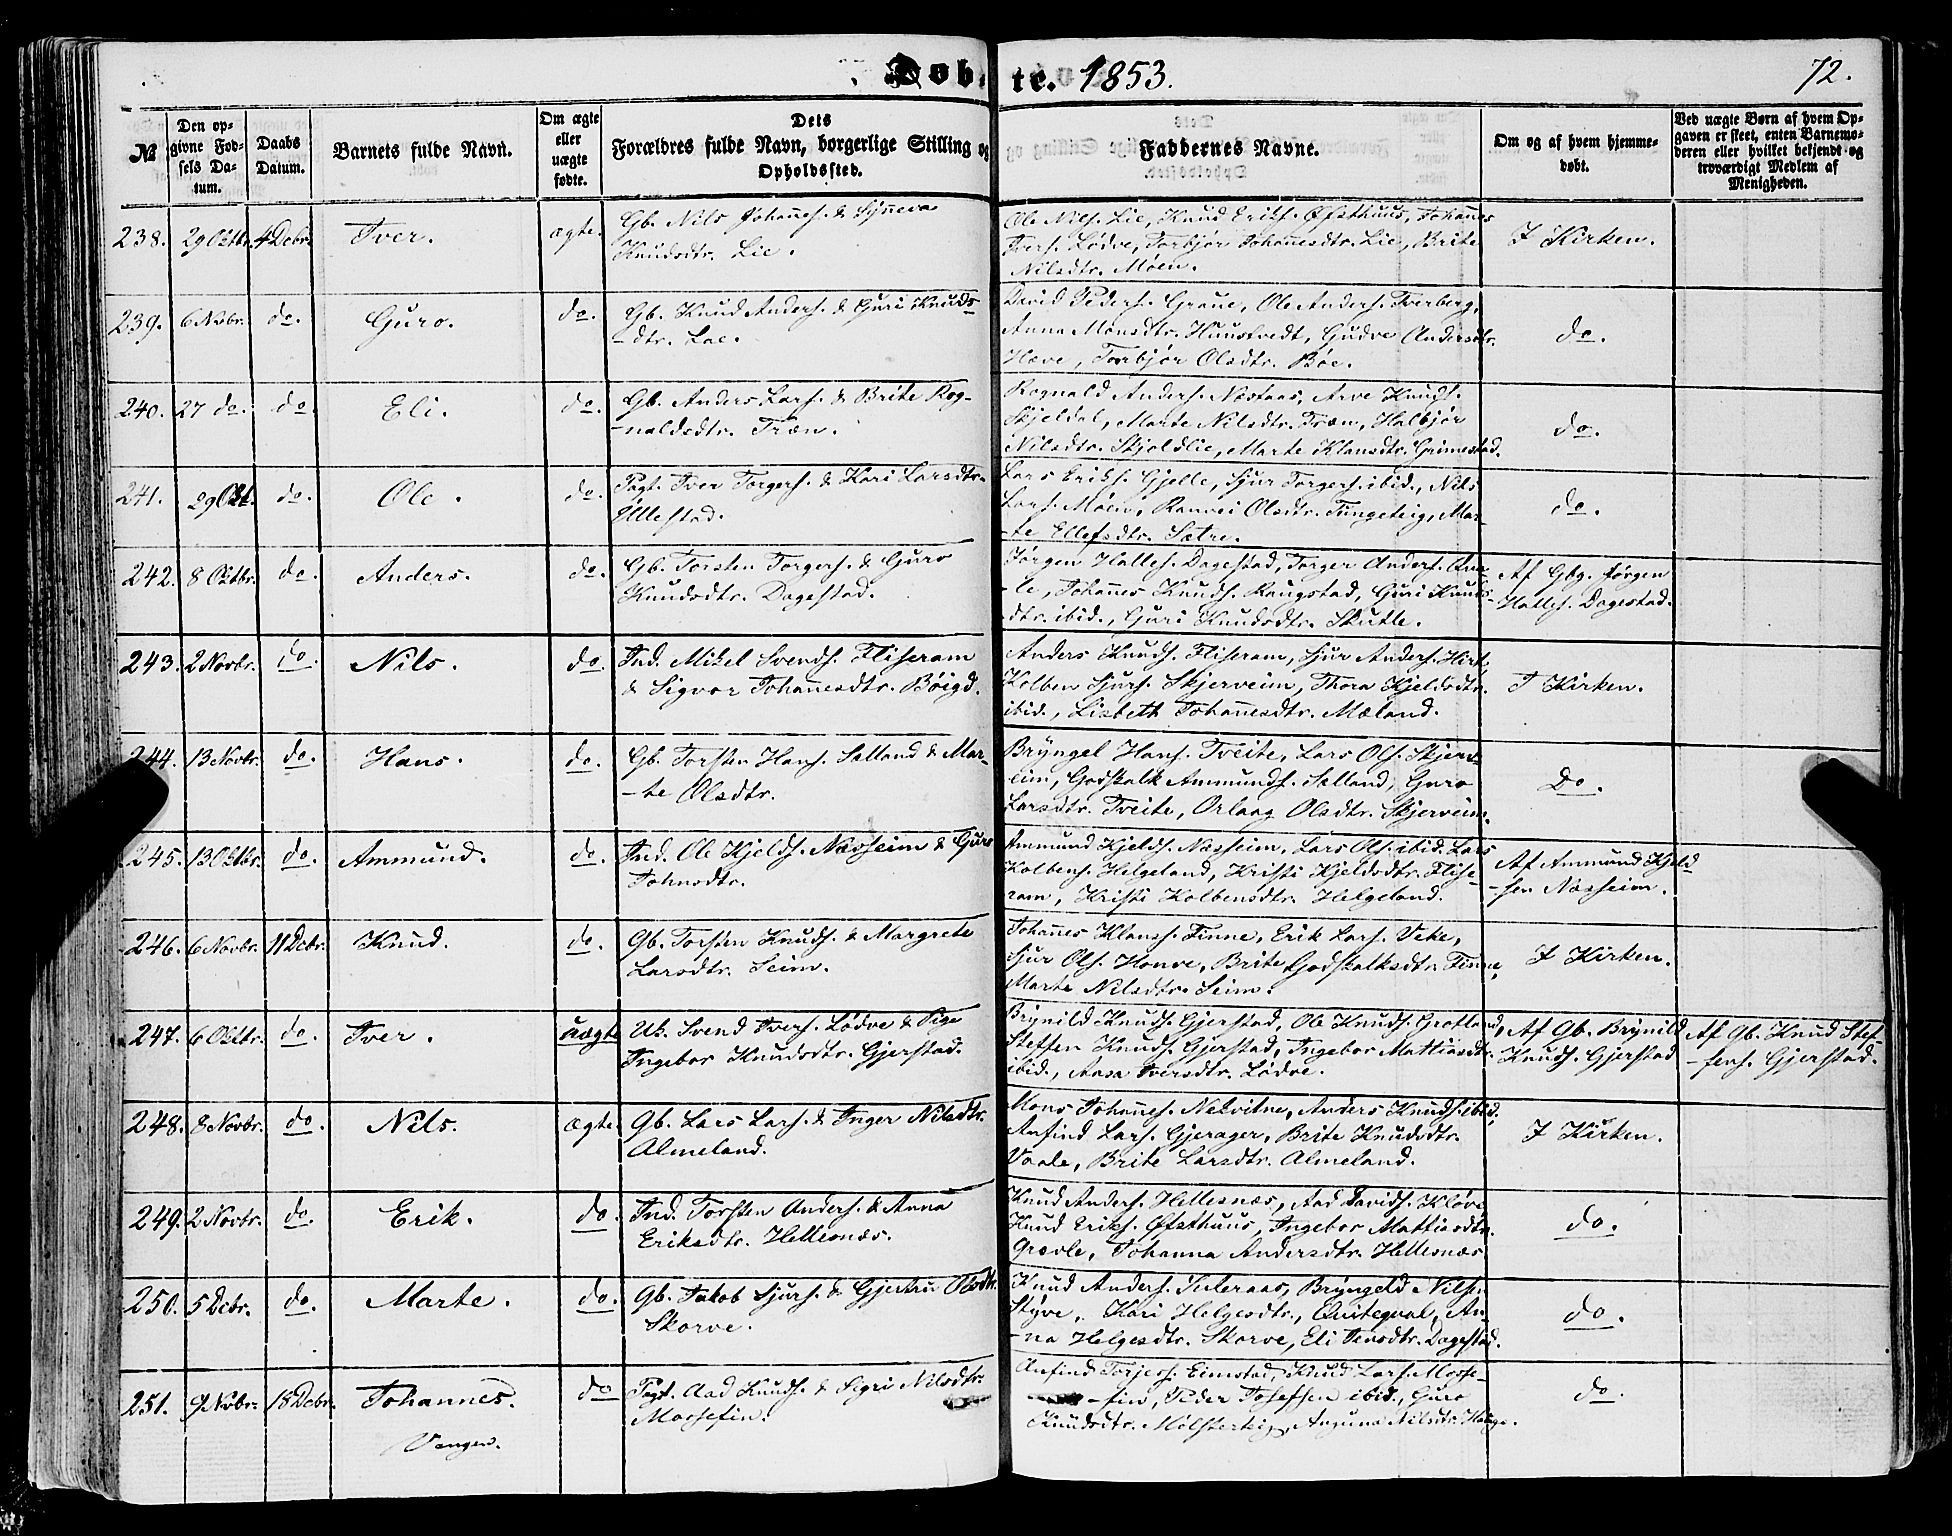 Døbte. 1853.
72.
№
Den op-
givne Fød-
sels Da-
tum.
Daabs
Datum.
Barnets fulde Navn.
Om ægte
eller
uægte
fødte.
Dets
Forældres fulde Navn, borgerlige Stilling og
Opholdssted.
Faddernes Navne.
Om og af hvem hjemme-
døbt.
Ved uægte Børn af hvem Op-
gaven er skeet, enten Barnemo-
deren eller hvilket bekjendt og
troværdigt Medlem af
Menigheden.
238. 29 Oktbr. 4 Debr. Iver. ægte.
Gb. Nils Johañes. & Syñeva
Knudsdtr. Lie.
Ole Nils. Lie, Knud Eriks. Øfsthuus, Johañes
Ivers. Lødve, Torbjør Johañesdtr. Lie, Brite
Nilsdtr. Møen.
I Kirken.
239. 6 Novbr. do. Guro. do.
Gb. Knud Anders. & Guri Knuds-
-dtr. Lae.
David Peders. Graue, Ole Anders. Tverberg,
Anna Monsdtr. Huustvedt, Gudve Andersdtr.
Hæve, Torbjør Olsdtr. Bøe.
do.
240. 27 do. do. Eli. do.
Gb. Anders Lars. & Brite Rog-
-naldsdtr. Træn.
Rognald Anders. Næstaas, Arve Knuds.
Skjeldal, Marte Nilsdtr. Træn, Halbjør
Nilsdtr. Skjoldlie, Marte Klausdtr. Grimestad.
do.
241. 29 Okt. do. Ole. do.
Pagt. Iver Torgers. & Kari Larsdtr.
Ullestad.
Lars Eriks. Gjelle, Sjur Torgers. ibid., Nils
Lars. Møen, Ranvei Olsdtr. Tungeteig, Mar-
-te Ellefsdtr. Sætre.
do.
242. 8 Oktbr. do. Anders. do.
Gb. Torsten Torgers. & Guro
Knudsdtr. Dagestad.
Jørgen Halles. Dagestad, Torger Anders. Qva-
-le, Johañes Knuds. Raugstad, Guri Knuds-
dtr. ibid., Guri Knudsdtr. Skutle.
Af Gbg. Jørgen
-Halles. Dagestad.
243. 2 Novbr. do. Nils. do.
Ind. Mikel Svends. Fliseram
& Sigvor Johañesdtr. Bøigd.
Anders Knuds. Fliseram, Sjur Anders. Hirt,
Kolben Sjurs. Skjerveim, Thora Kjeldsdtr.
ibid., Lisbeth Johañesdtr. Mæland.
I Kirken.
244. 13 Novbr. do. Hans. do.
Gb. Torsten Hans. Salland & Mar-
-te Olsdtr.
Bryngel Hans. Tveite, Lars Ols. Skjerv-
eim, Godskalk Ammunds. Salland, Guro
Larsdtr. Tveite, Orlaug Olsdtr. Skjerveim.
Do.
245. 13 Oktbr. do. Ammund. do.
Ind. Ole Kjelds. Næsheim & Guro
Johnsdtr.
Ammund Kjelds. Næsheim, Lars Ols. ibid. Lars
Kolbens. Helgeland, Kristi Kjeldsdtr. Flise-
ram, Kristi Kolbensdtr. Helgeland.
Af Ammund Kjeld
-sen Næsheim.
246. 6 Novbr. 11 Debr. Knud. do.
Gb. Torsten Knuds. & Margrete
Larsdtr. Seim.
Johañes Klauss. Finne, Erik Lars. Veke,
Sjur Ols. Honve, Brite Godskalksdtr. Finne,
Marte Nilsdtr. Seim.
I Kirken.
247. 6 Oktbr. do. Iver. uægte
Uk. Svend Ivers. Lødve & Pige
Ingebor Knudsdtr. Gjerstad.
Brynild Knuds. Gjerstad, Ole Knuds. Grotland,
Steffen Knuds. Gjerstad, Ingebor Mathiasdtr.
ibid., Aasa Iversdtr. Lødve.
Af Gb. Brynild
Knuds. Gjerstad
Af Gb. Knud Stef-
-fens. Gjerstad.
248. 8 Novbr. do. Nils. ægte.
Gb. Lars Lars. & Inger Nilsdtr.
Almeland.
Mons Johañes. Nekvitne, Anders Knuds. ibid,
Anfind Lars. Gjerager, Brite Knudsdtr.
Vaale, Brite Larsdtr. Almeland.
I Kirken.
249. 2 Novbr. do. Erik. do.
Ind. Torsten Anders. & Anna
Eriksdtr. Hellesnæs.
Knud Anders. Hellesnæs, Aad Davids. Kløve
Knud Eriks. Øfsthuus, Ingebor Mathiasdtr.
Grævle, Johanna Andersdtr. Hellesnæs
do.
250. 5 Debr. do. Marte. do.
Gb. Jakob Sjurs. & Gjertru Olsdtr.
Skorve.
Knud Anders. Seleraas, Bryngeld Nils.
Styve, Kari Helgesdtr., Qvitegval, An-
-na Helgesdtr. Skorve, Eli Jensdtr. Dagestad.
do.
251. 9 Novbr. 18 Debr. Johannes. do
Vangen.
Pagt. Aad Knuds. & Sigri Nilsdtr.
Mossefin.
Anfind Torjers. Eimstad, Knud Lars. Mosse-
-fin, Peder Josefsen ibid., Guro
Knudsdtr. Mølsterteig, Anguna Nilsdtr. Hauge.
do.